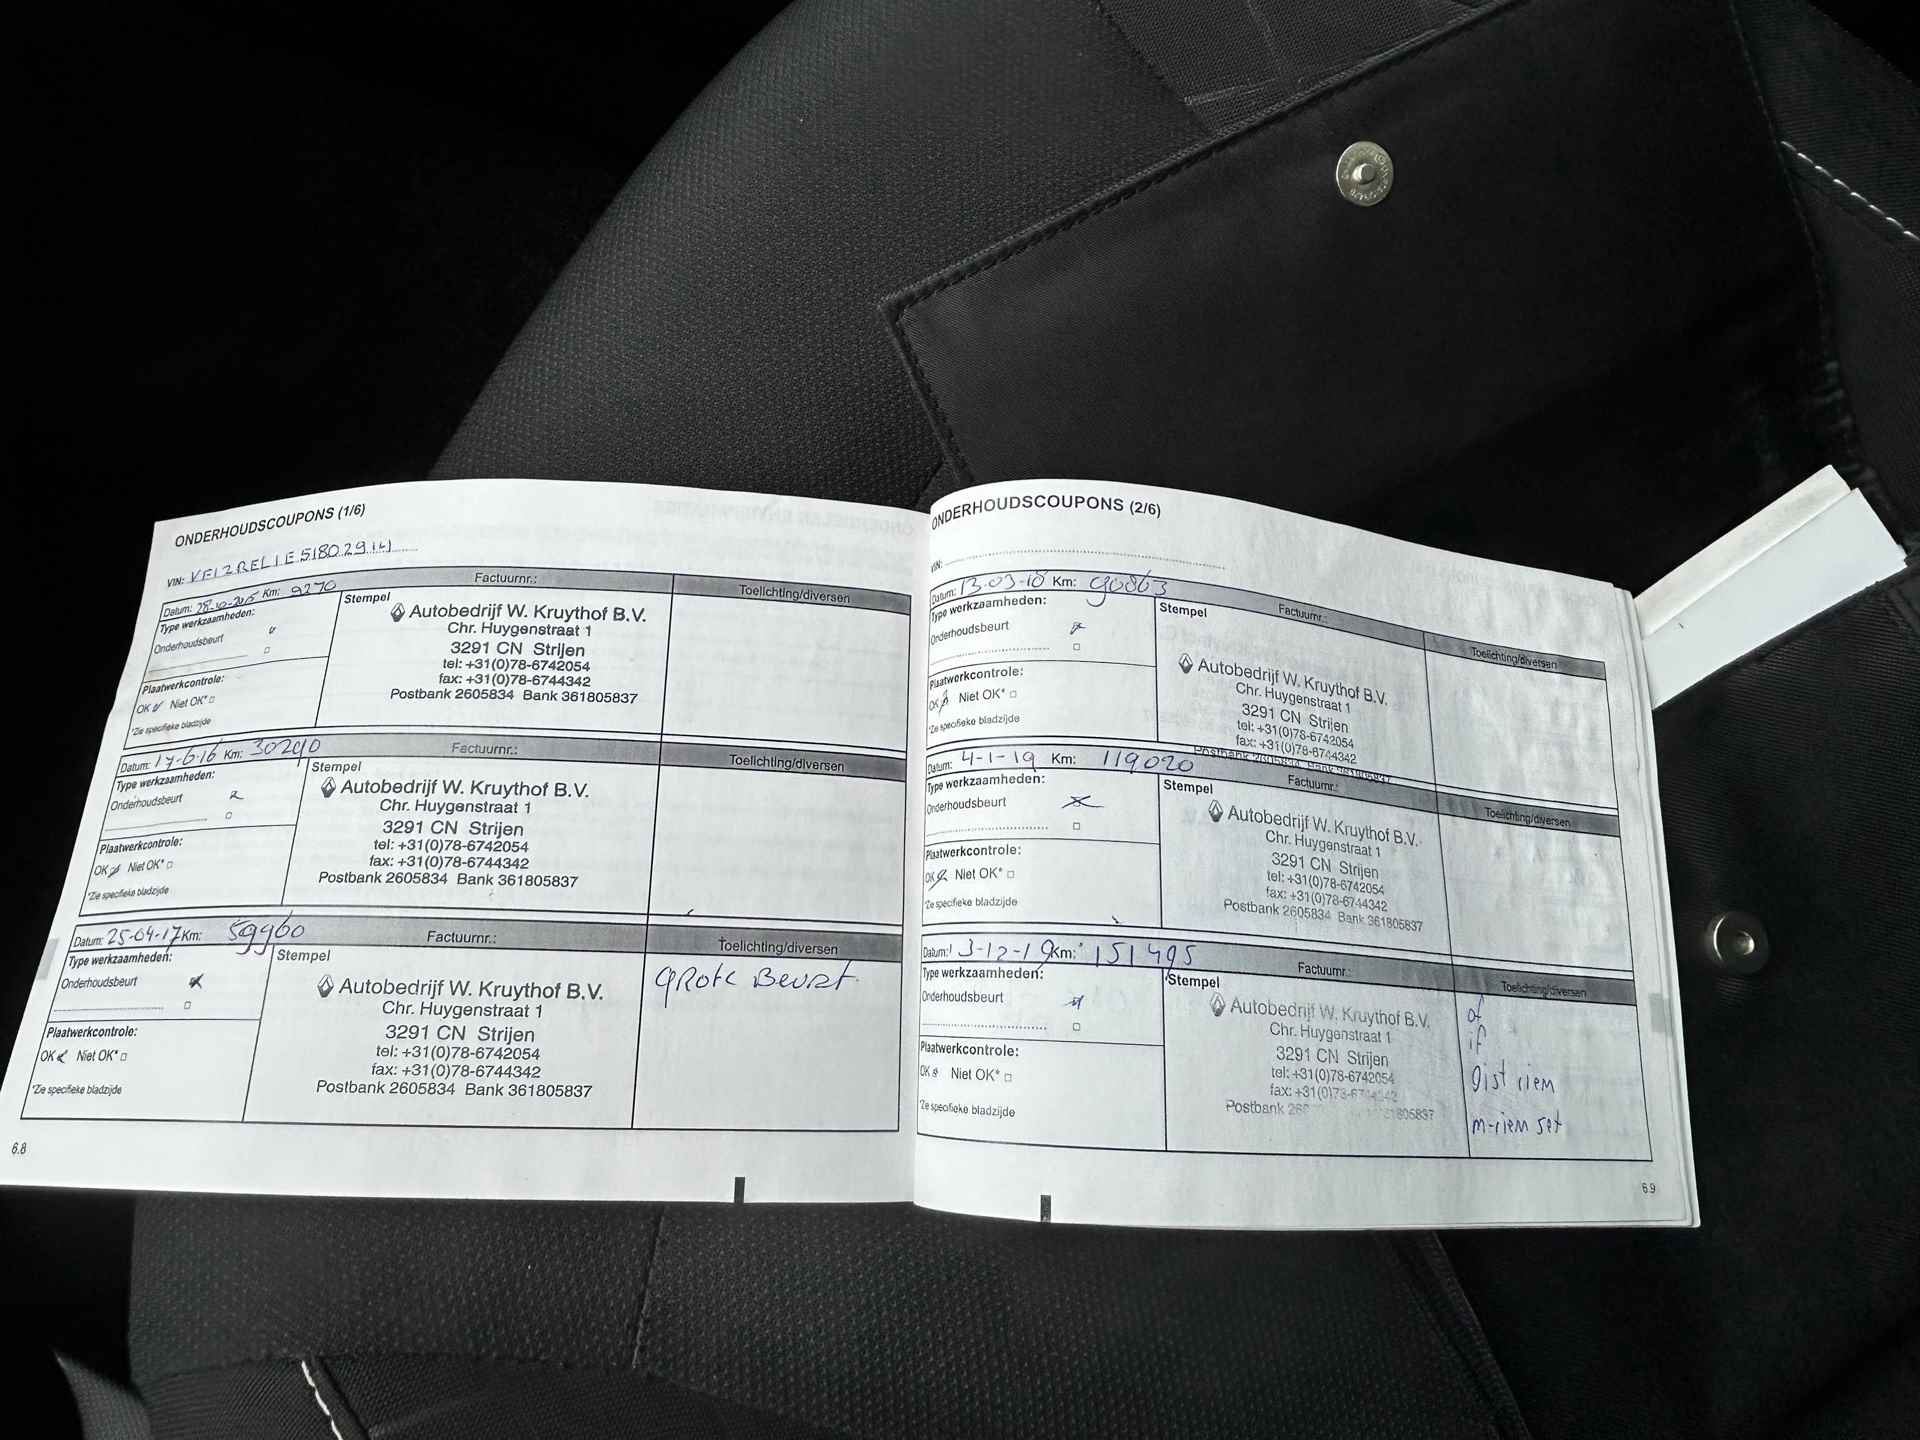 ONDERHOUDSCOUPONS (1/6)
VIN:
Datum: 28-10-2015 Km: 9270 Factuurnr.: Toelichting/diversen
Type werkzaamheden:
Onderhoudsbeurt
Plaatwerkcontrole:
OK Niet OK*
*Zie specifieke bladzijde
Stempel
Autobedrijf W. Kruythof B.V.
Chr. Huygenstraat 1
3291 CN Strijen
tel: +31(0)78-6742054
fax: +31(0)78-6744342
Postbank 2605834 Bank 361805837
Datum: 17-6-16 Km: 30290 Factuurnr.: Toelichting/diversen
Type werkzaamheden:
Onderhoudsbeurt
Plaatwerkcontrole:
OK Niet OK*
*Zie specifieke bladzijde
Stempel
Autobedrijf W. Kruythof B.V.
Chr. Huygenstraat 1
3291 CN Strijen
tel: +31(0)78-6742054
fax: +31(0)78-6744342
Postbank 2605834 Bank 361805837
Datum: 25-04-17 Km: 59960 Factuurnr.: Toelichting/diversen
Type werkzaamheden:
Onderhoudsbeurt
Plaatwerkcontrole:
OK Niet OK*
*Zie specifieke bladzijde
Stempel
Autobedrijf W. Kruythof B.V.
Chr. Huygenstraat 1
3291 CN Strijen
tel: +31(0)78-6742054
fax: +31(0)78-6744342
Postbank 2605834 Bank 361805837
grote Beurt
6.8
ONDERHOUDSCOUPONS (2/6)
VIN:
Datum: 13-03-18 Km: 90863 Factuurnr.: Toelichting/diversen
Type werkzaamheden:
Onderhoudsbeurt
Plaatwerkcontrole:
OK Niet OK*
*Zie specifieke bladzijde
Stempel
Autobedrijf W. Kruythof B.V.
Chr. Huygenstraat 1
3291 CN Strijen
tel: +31(0)78-6742054
fax: +31(0)78-6744342
Postbank 2605834 Bank 361805837
Datum: 4-1-19 Km: 119020 Factuurnr.: Toelichting/diversen
Type werkzaamheden:
Onderhoudsbeurt
Plaatwerkcontrole:
OK Niet OK*
*Zie specifieke bladzijde
Stempel
Autobedrijf W. Kruythof B.V.
Chr. Huygenstraat 1
3291 CN Strijen
tel: +31(0)78-6742054
fax: +31(0)78-6744342
Postbank 2605834 Bank 361805837
Datum: 13-12-19 Km: 151495 Factuurnr.: Toelichting/diversen
Type werkzaamheden:
Onderhoudsbeurt
Plaatwerkcontrole:
OK Niet OK*
*Zie specifieke bladzijde
Stempel
Autobedrijf W. Kruythof B.V.
Chr. Huygenstraat 1
3291 CN Strijen
tel: +31(0)78-6742054
Postbank
of
if
dist riem
m-riem set
6.9